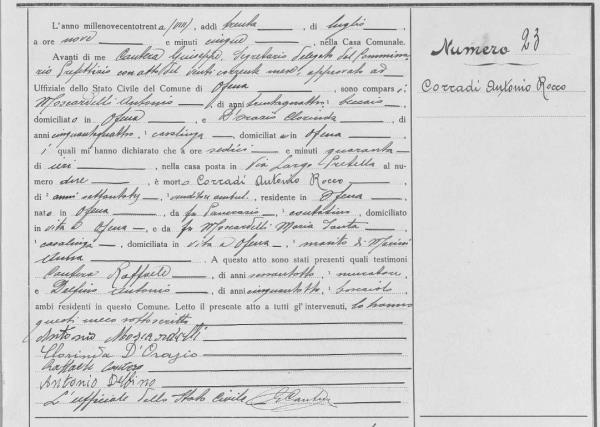 L'anno millenovecentotrenta (VIII), addì trenta, di luglio,
a ore nove e minuti cinque, nella Casa Comunale.
Avanti di me Cantera Giuseppe, Segretario Delegato dal Commissa-
rio Prefettizio con atto del venti corrente mese, approvato ad
Uffiziale dello Stato Civile del Comune di Ofena, sono comparsi
Moscardelli Antonio, di anni trentaquattro, beccaio,
domiciliato in Ofena e D'Orazio Clorinda, di
anni cinquantaquattro, casalinga, domiciliata in Ofena,
i quali mi hanno dichiarato che a ore sedici e minuti quaranta
di ieri, nella casa posta in Via Largo Pretella al nu-
mero due, è morto Corradi Antonio Rocco
di anni settantasei, venditore ambul., residente in Ofena,
nato in Ofena, da fu Pancrazio, contadino, domiciliato
in vita a Ofena, e da fu Moscardelli Maria Santa
casalinga, domiciliata in vita a Ofena, marito di
Anna. A questo atto sono stati presenti quali testimoni
Cantera Raffaele, di anni sessantotto, muratore,
e Delfino Antonio, di anni cinquantotto,
ambi residenti in questo Comune. Letto il presente atto a tutti gl'intervenuti, lo hanno
questi meco sottoscritto
Antonio Moscardelli
Clorinda D'Orazio
Raffaele Cantera
Antonio Delfino
L'ufficiale dello Stato Civile GCantera
Numero 23
Corradi Antonio Rocco